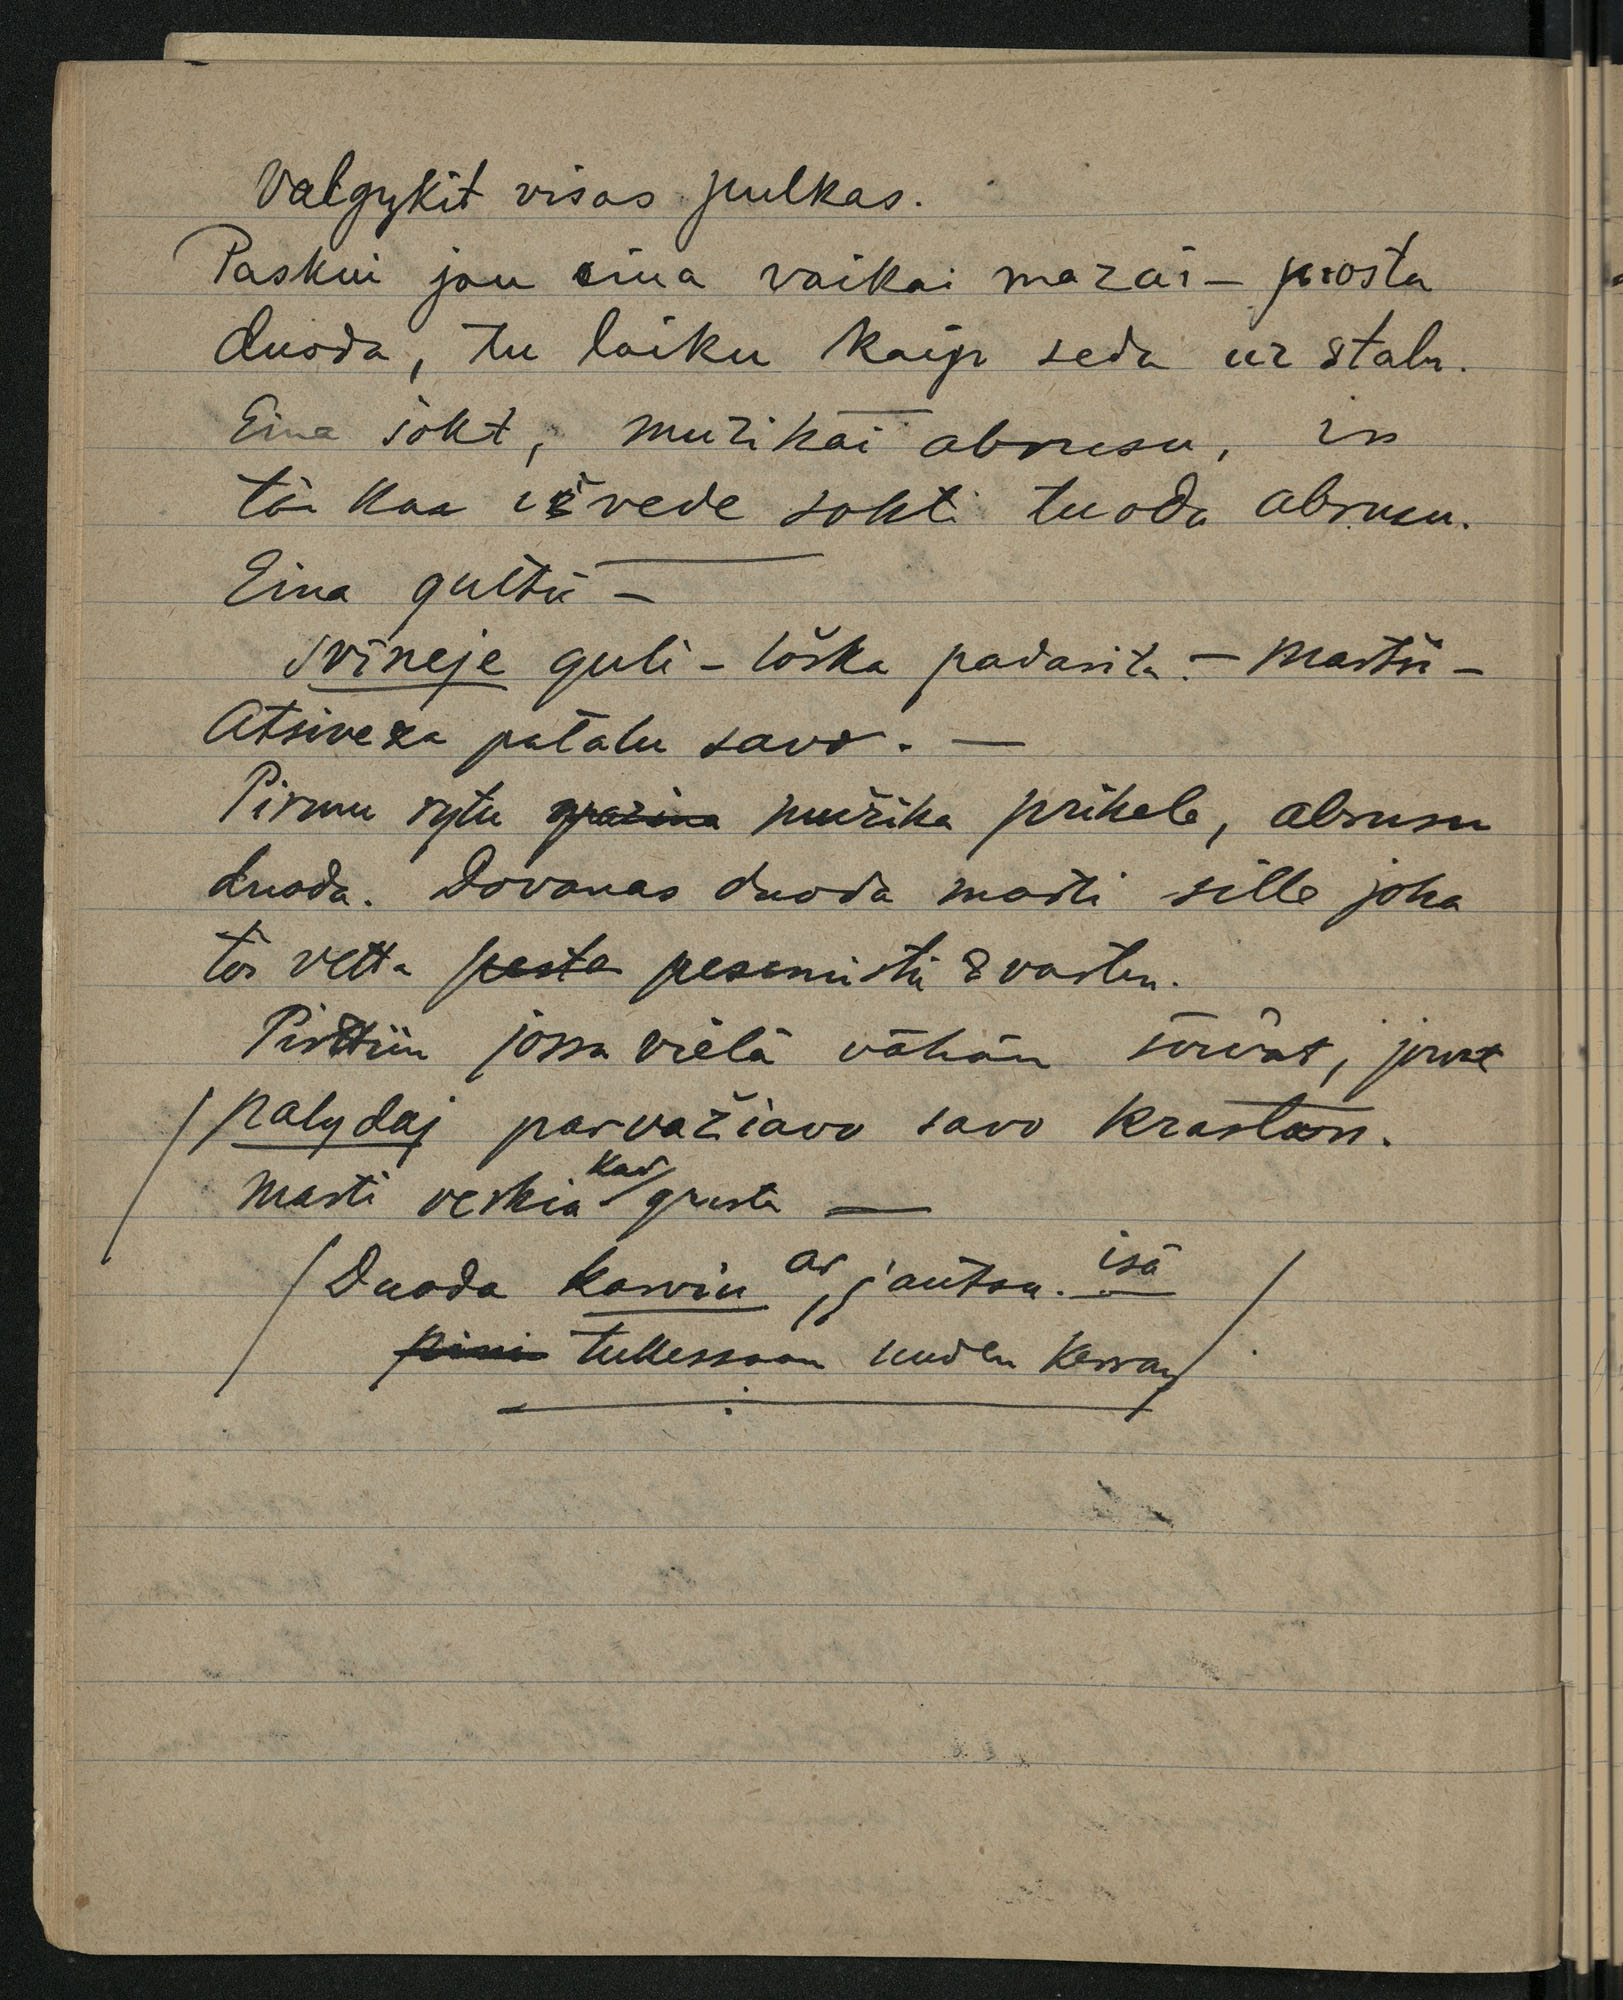 Valgykit visas pulkas.
Paskui jau eina vaikai mazai – prosta
duoda, tu laiku kaip seda uz stalu.
Eina šokt, muzikai abrusu, in
tõi kaa išvede sokti tuoda abrusu.
Eina gultü –
svineje guli – loska padarita. – Martii –
Atsiveza patalu savo. –
Pirmu rytu grazina muzika prikele, abrusu
duoda. Dovanas duoda marti sille joka
toi vettä pesta pesemistä varten.
Pirttiin jossa vielä vähän syövät, juovat
palydaj parvažiavo savo kraštan.
Marti verkia kad grusta —
Duoda karviu ar jautsu. isä
pimi tullessaan uuden kerran